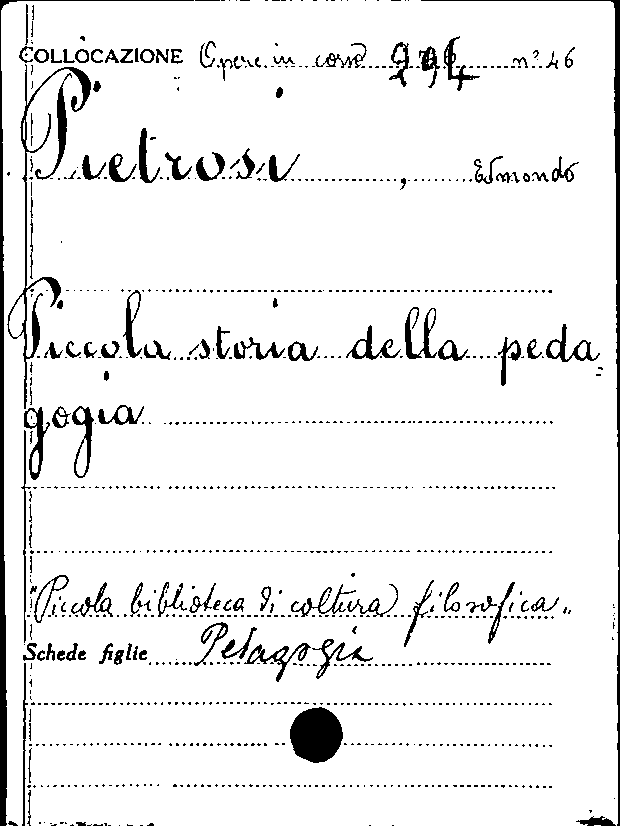 COLLOCAZIONE Opere in corso 294 n° 46
Pietrosi, Edmondo
Piccola storia della peda=
gogia
"Piccola biblioteca di coltura filosofica"
Schede figlie Pedagogia